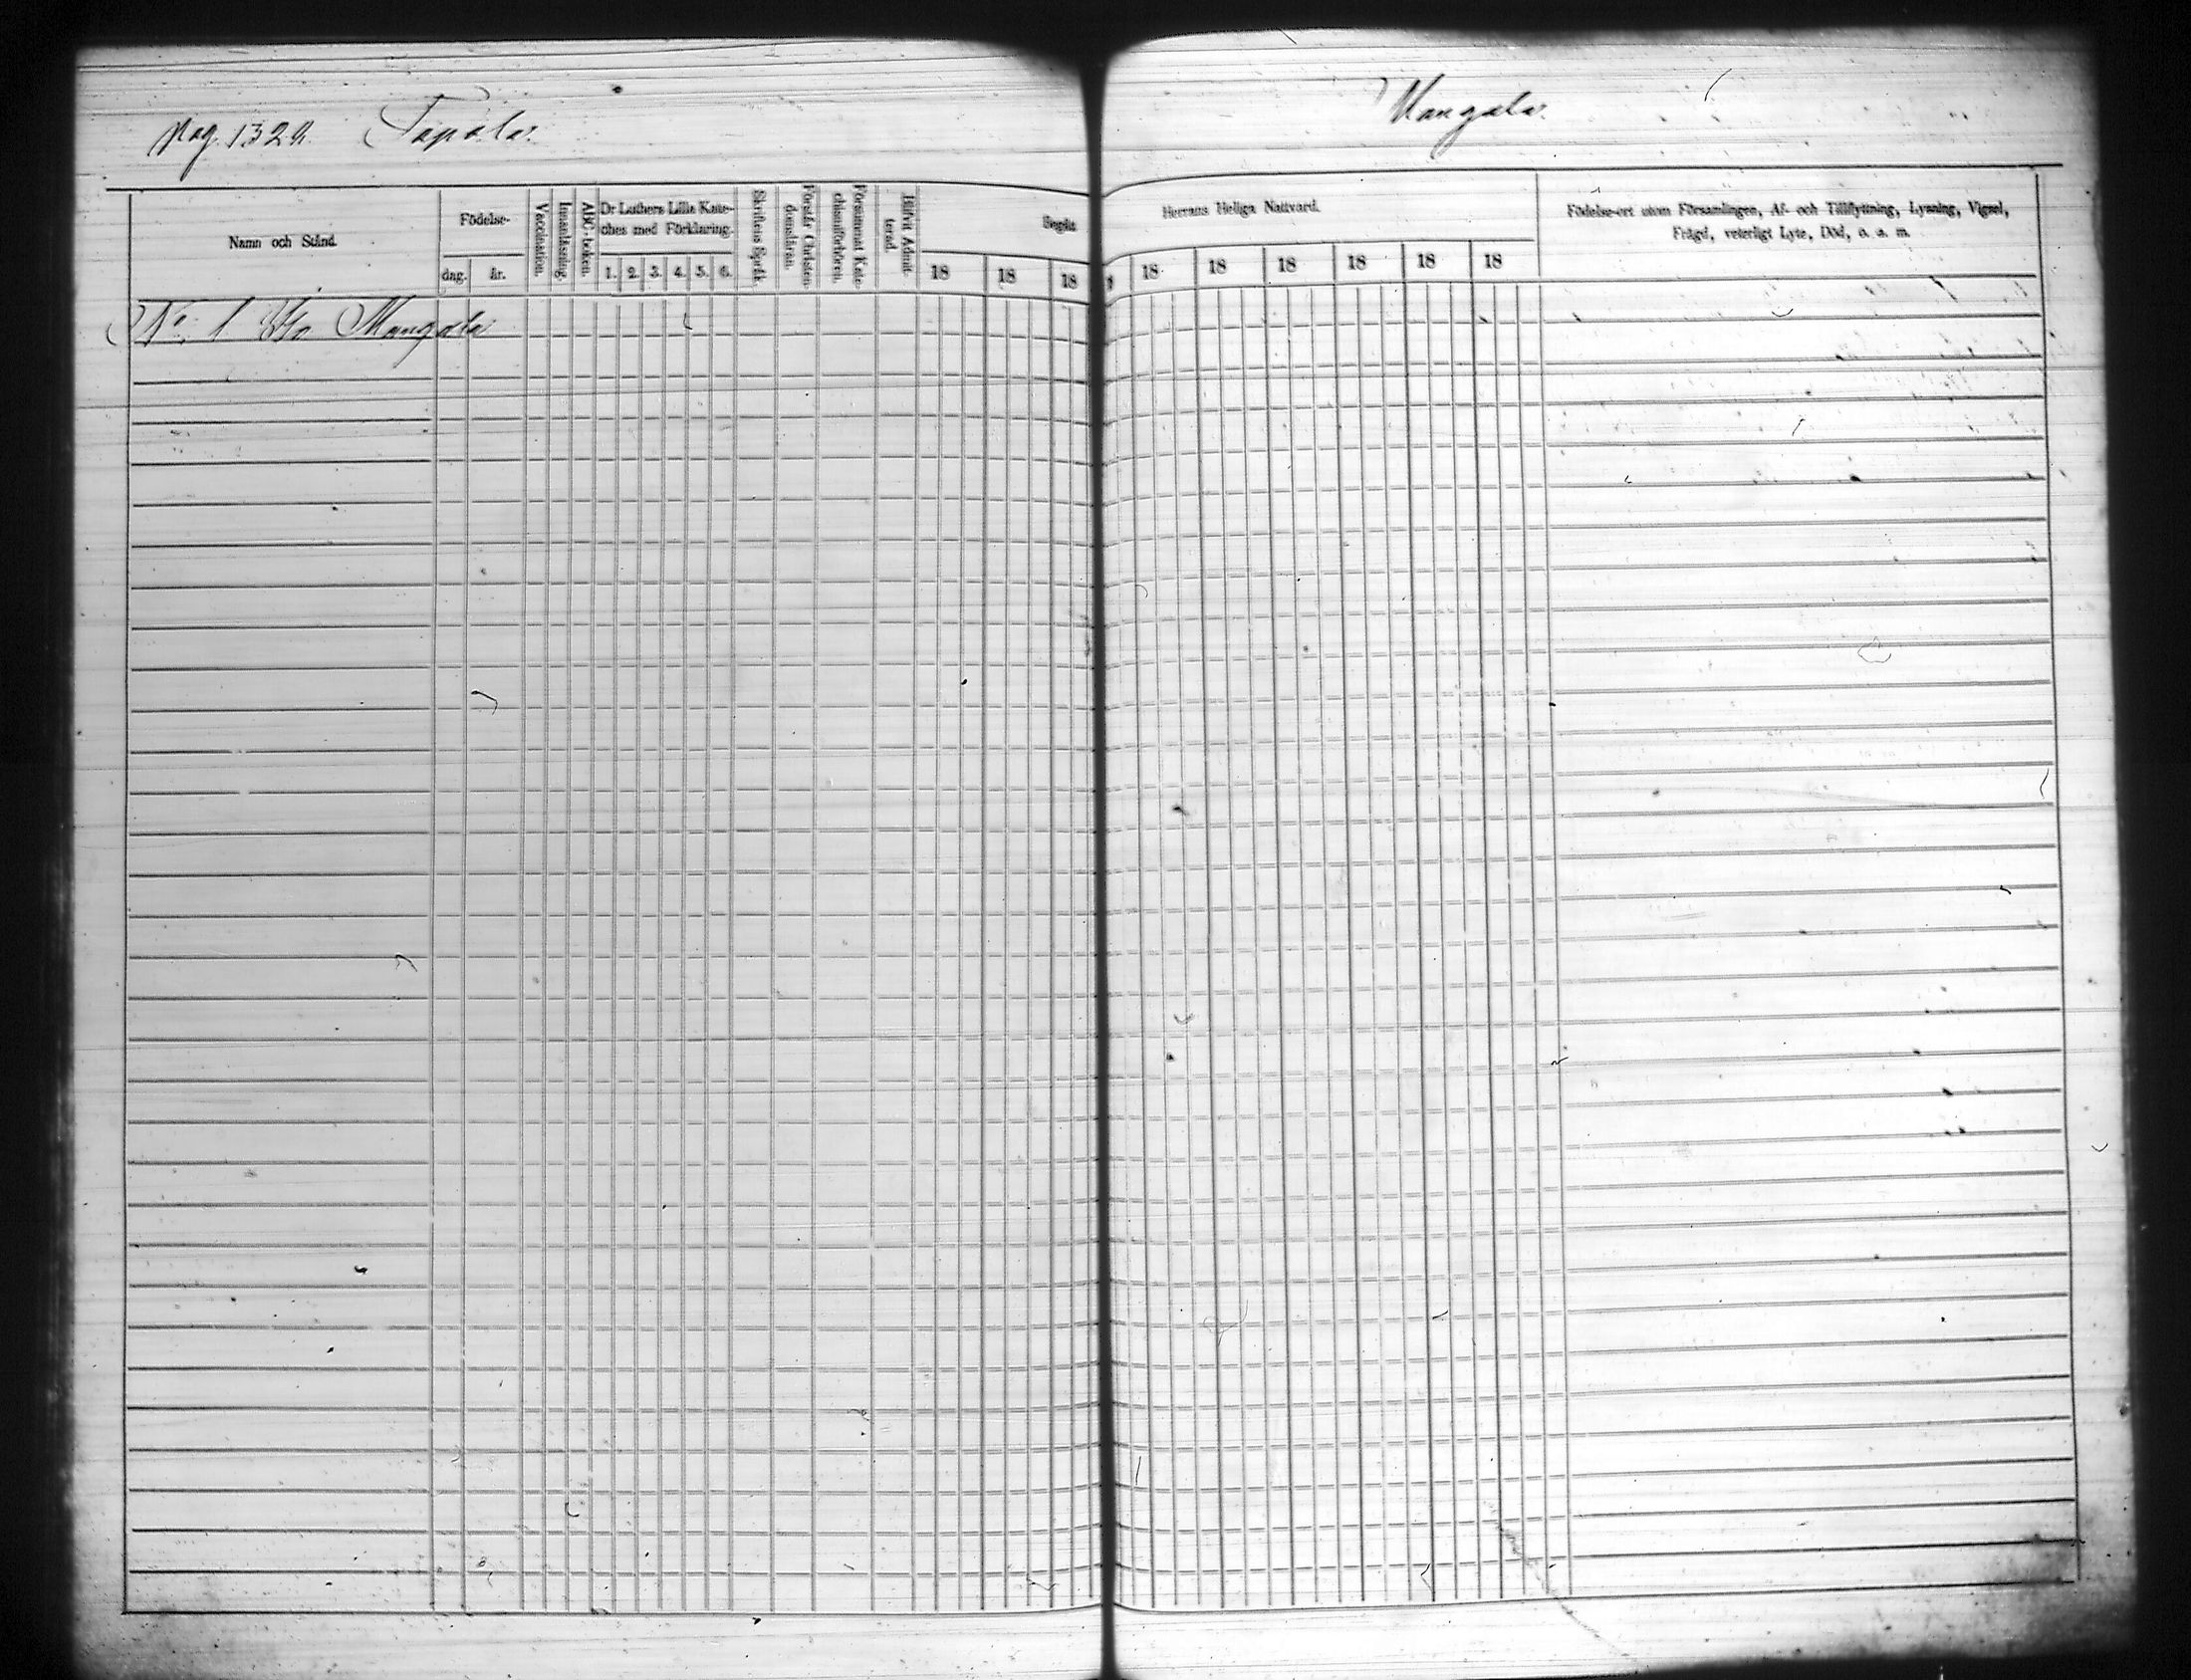 pag. 1322. Tapola.
Mangala.
Namn och Stånd.
Födelse-
dag.
år.
Vaccination.
Innanläsning.
ABC-boken.
Dr Luthers Lilla Kate-
ches med Förklaring.
1. 2. 3. 4. 5. 6.
Skriftens Språk.
Förstår Christen-
domsläran.
Försummat Kate-
chismiförhören.
Blifvit Admit-
terad.
Begått
18 18 18
Herrans Heliga Nattvard.
18 18 18 18 18 18
Födelse-ort utom Församlingen, Af- och Tillflyttning, Lysning, Vigsel,
Frägd, veterligt Lyte, Död, o. a. m.
No. 1 Iso Mangala